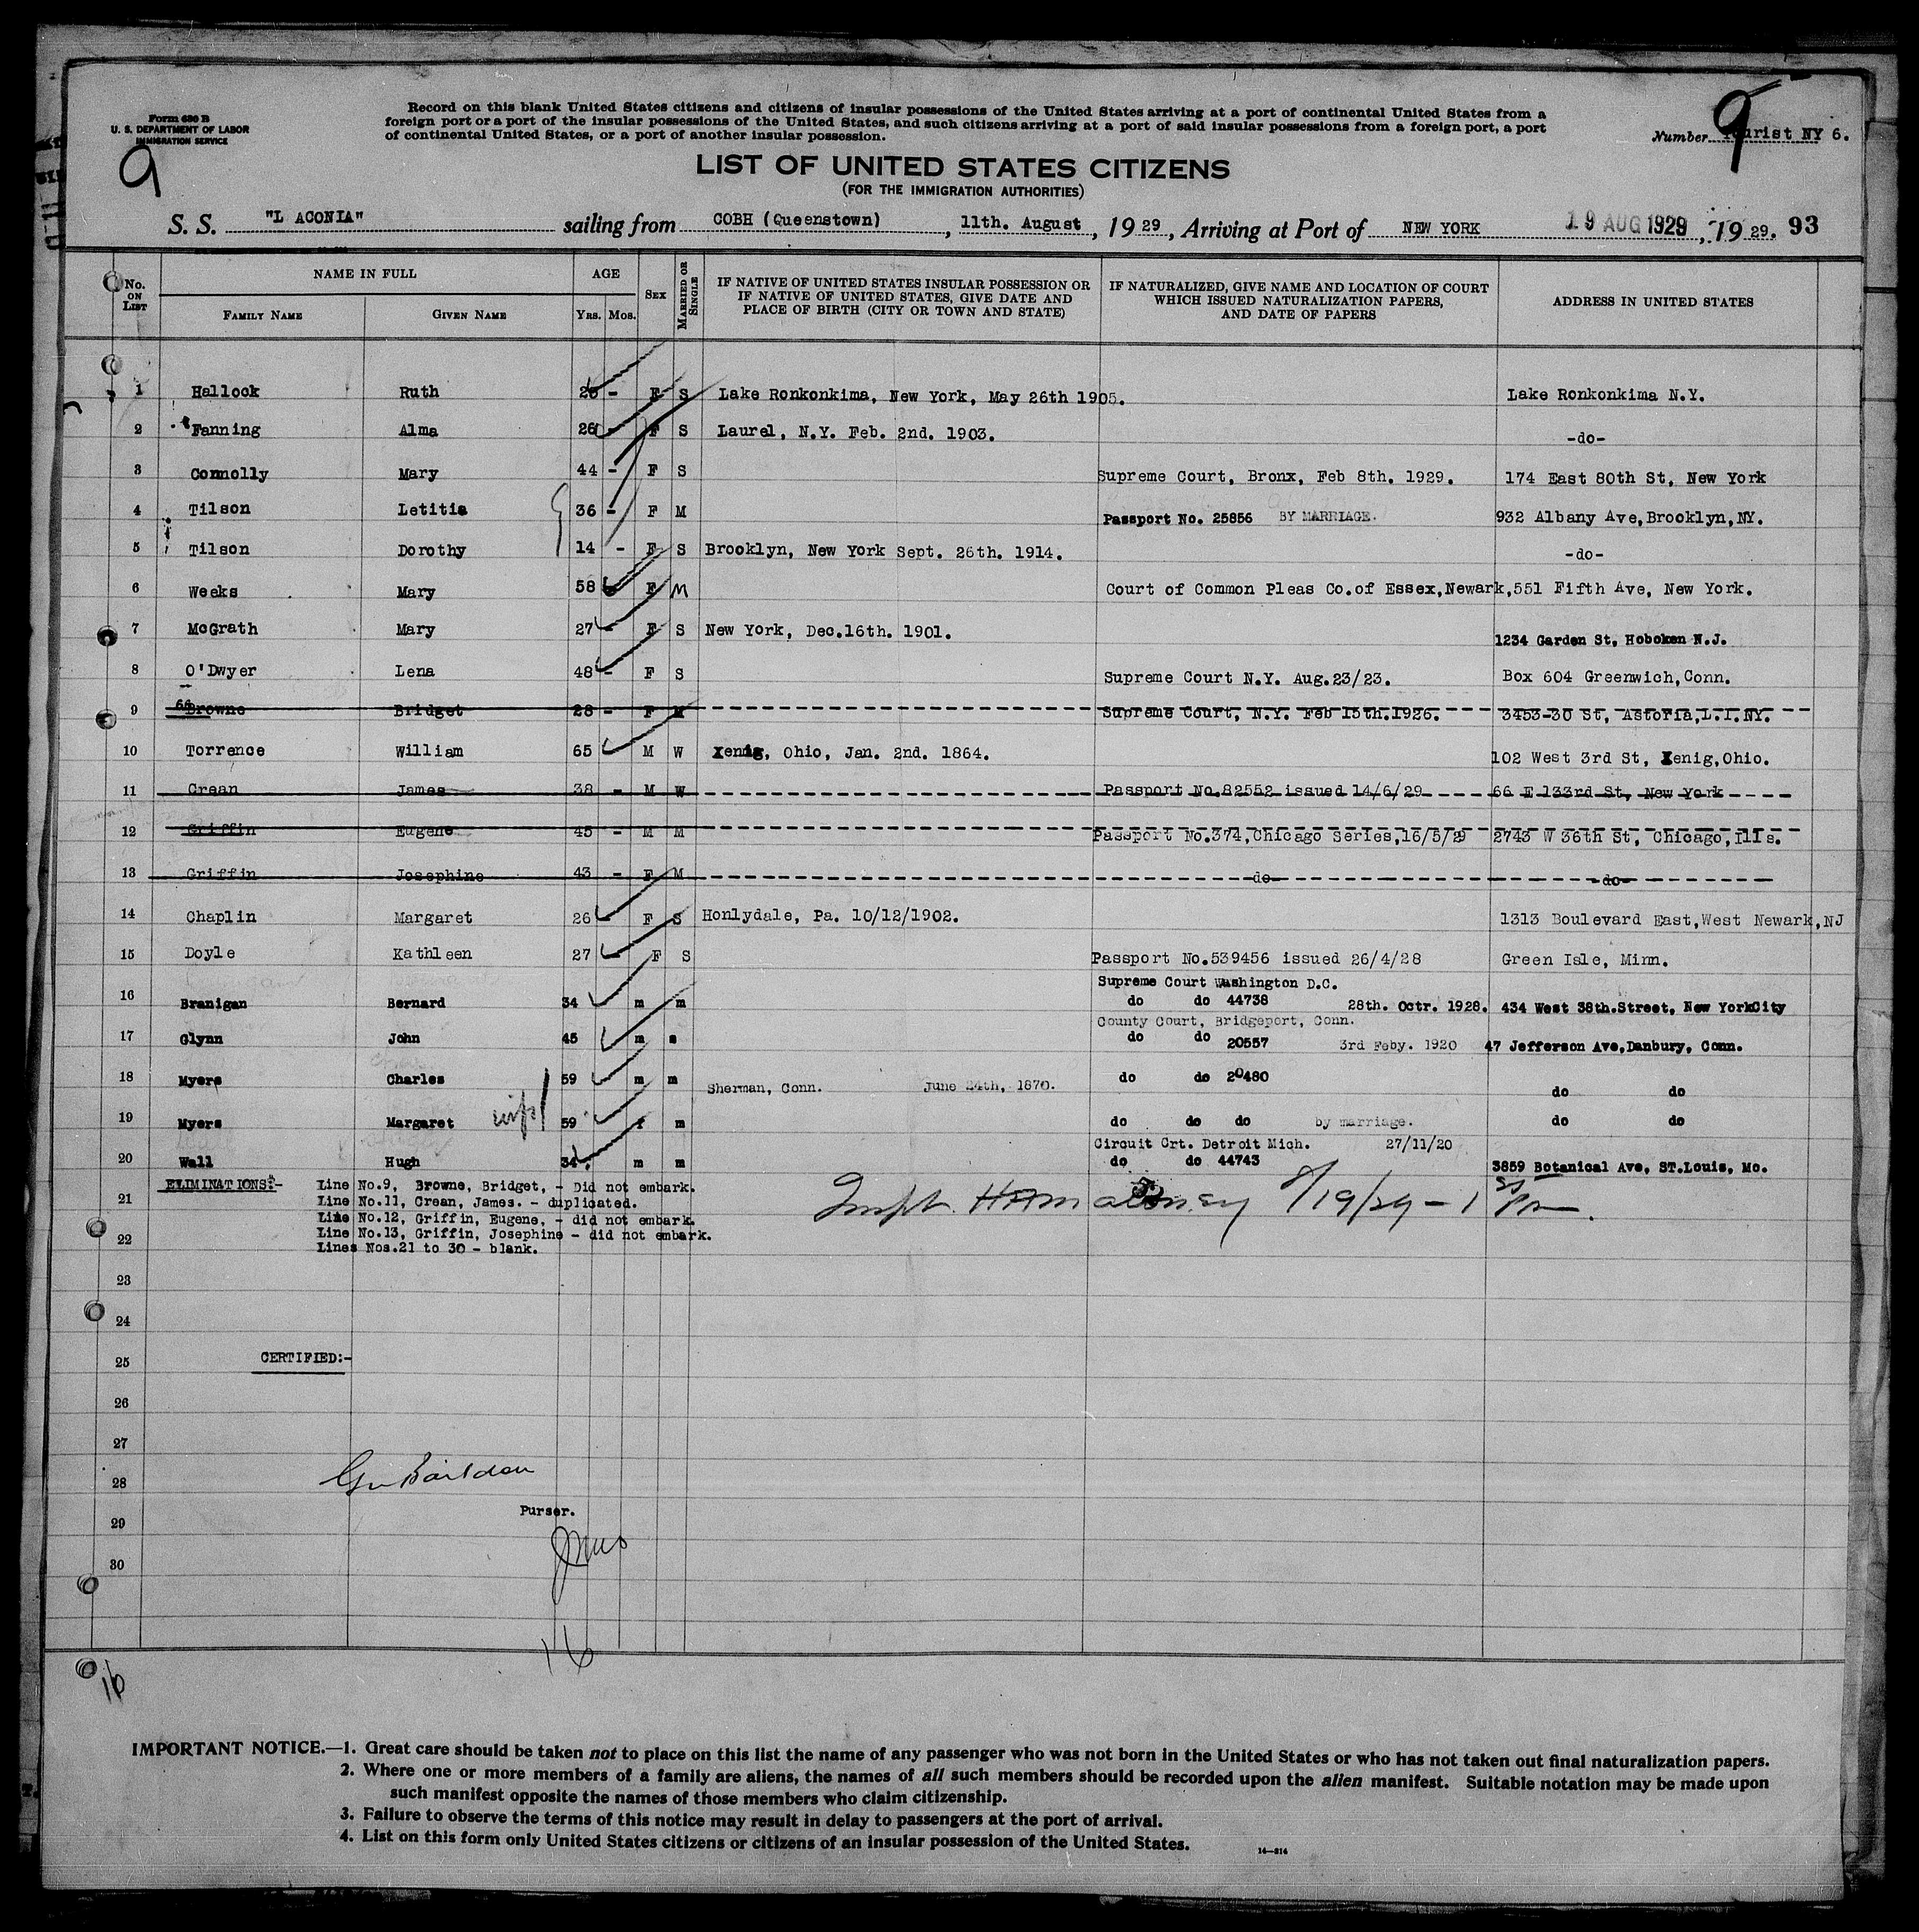 Form 630 B
U. S. DEPARTMENT OF LABOR
IMMIGRATION SERVICE
9
Record on this blank United States citizens and citizens of insular possessions of the United States arriving at a port of continental United States from a
foreign port or a port of the insular possessions of the United States, and such citizens arriving at a port of said insular possessions from a foreign port, a port
of continental United States, or a port of another insular possession.
9
Number Tourist NY 6.
LIST OF UNITED STATES CITIZENS
(FOR THE IMMIGRATION AUTHORITIES)
S. S. "L ACONIA" sailing from COBH (Queenstown), 11th. August, 1929, Arriving at Port of NEW YORK 19 AUG 1929, 1929. 93
No. ON LIST NAME IN FULL FAMILY NAME GIVEN NAME AGE YRS. MOS. SEX MARRIED OR SINGLE IF NATIVE OF UNITED STATES INSULAR POSSESSION OR IF NATIVE OF UNITED STATES, GIVE DATE AND PLACE OF BIRTH (CITY OR TOWN AND STATE) IF NATURALIZED, GIVE NAME AND LOCATION OF COURT WHICH ISSUED NATURALIZATION PAPERS, AND DATE OF PAPERS ADDRESS IN UNITED STATES
1 Hallock Ruth - F S Lake Ronkonkima, New York, May 26th 1905. Lake Ronkonkima N.Y.
2 Fanning Alma 26 - F S Laurel, N.Y. Feb. 2nd. 1903. -do-
3 Connolly Mary 44 - F S Supreme Court, Bronx, Feb 8th. 1929. 174 East 80th St, New York
4 Tilson Letitia 36 - F M Passport No. 25856 BY MARRIAGE. 932 Albany Ave,Brooklyn,NY.
5 Tilson Dorothy 14 - F S Brooklyn, New York Sept. 26th. 1914. -do-
6 Weeks Mary 58 F M Court of Common Pleas Co.of Essex,Newark, 551 Fifth Ave, New York.
7 McGrath Mary 27 - F S New York, Dec.16th. 1901. 1234 Garden St, Hoboken N.J.
8 O'Dwyer Lena 48 - F S Supreme Court N.Y. Aug.23/23. Box 604 Greenwich,Conn.
9 66 Browne Bridget 28 - F M Supreme Court, N.Y. Feb 15th.1926. 3453-30 St, Astoria,L.I.NY.
10 Torrence William 65 M W Xenig, Ohio, Jan. 2nd. 1864. 102 West 3rd St, Xenig,Ohio.
11 Crean James 38 - M W Passport No.82552 issued 14/6/29 66 E 133rd St, New York
12 Griffin Eugene 45 - M M Passport No.374,Chicago Series,16/5/29 2743 W 36th St, Chicago,Ills.
13 Griffin Josephine 43 - F M -do- -do-
14 Chaplin Margaret 26 - F S Honlydale, Pa. 10/12/1902. 1313 Boulevard East,West Newark,NJ
15 Doyle Kathleen 27 - F S Passport No.539456 issued 26/4/28 Green Isle, Minn.
Supreme Court Washington D.C.
16 Branigan Bernard 34 m m do do 44738 28th. Octr. 1928. 434 West 38th.Street, New YorkCity
County Court, Bridgeport, Conn.
17 Glynn John 45 m s do do 20557 3rd Feby. 1920 47 Jefferson Ave,Danbury, Conn.
18 Myers Charles 59 m m Sherman, Conn. June 24th, 1870. do do 20480 do do
19 Myers Margaret wife 59 f m do do do by marriage. do do
Circuit Crt. Detroit Mich. 27/11/20
20 Wall Hugh 34 m m do do 44743 3859 Botanical Ave, ST.Louis, Mo.
ELIMINATIONS:- Line No.9, Browne, Bridget, - Did not embark.
21 Line No.11, Crean, James. - duplicated.
Line No.12, Griffin, Eugene, - did not embark.
Line No.13, Griffin, Josephine - did not embark.
22 Lines Nos.21 to 30 - blank.
8/19/29 - 1
23
24
25 CERTIFIED:-
26
27
28
Purser.
29
30
16
16
IMPORTANT NOTICE.—1. Great care should be taken not to place on this list the name of any passenger who was not born in the United States or who has not taken out final naturalization papers.
2. Where one or more members of a family are aliens, the names of all such members should be recorded upon the alien manifest. Suitable notation may be made upon
such manifest opposite the names of those members who claim citizenship.
3. Failure to observe the terms of this notice may result in delay to passengers at the port of arrival.
4. List on this form only United States citizens or citizens of an insular possession of the United States.
14—814